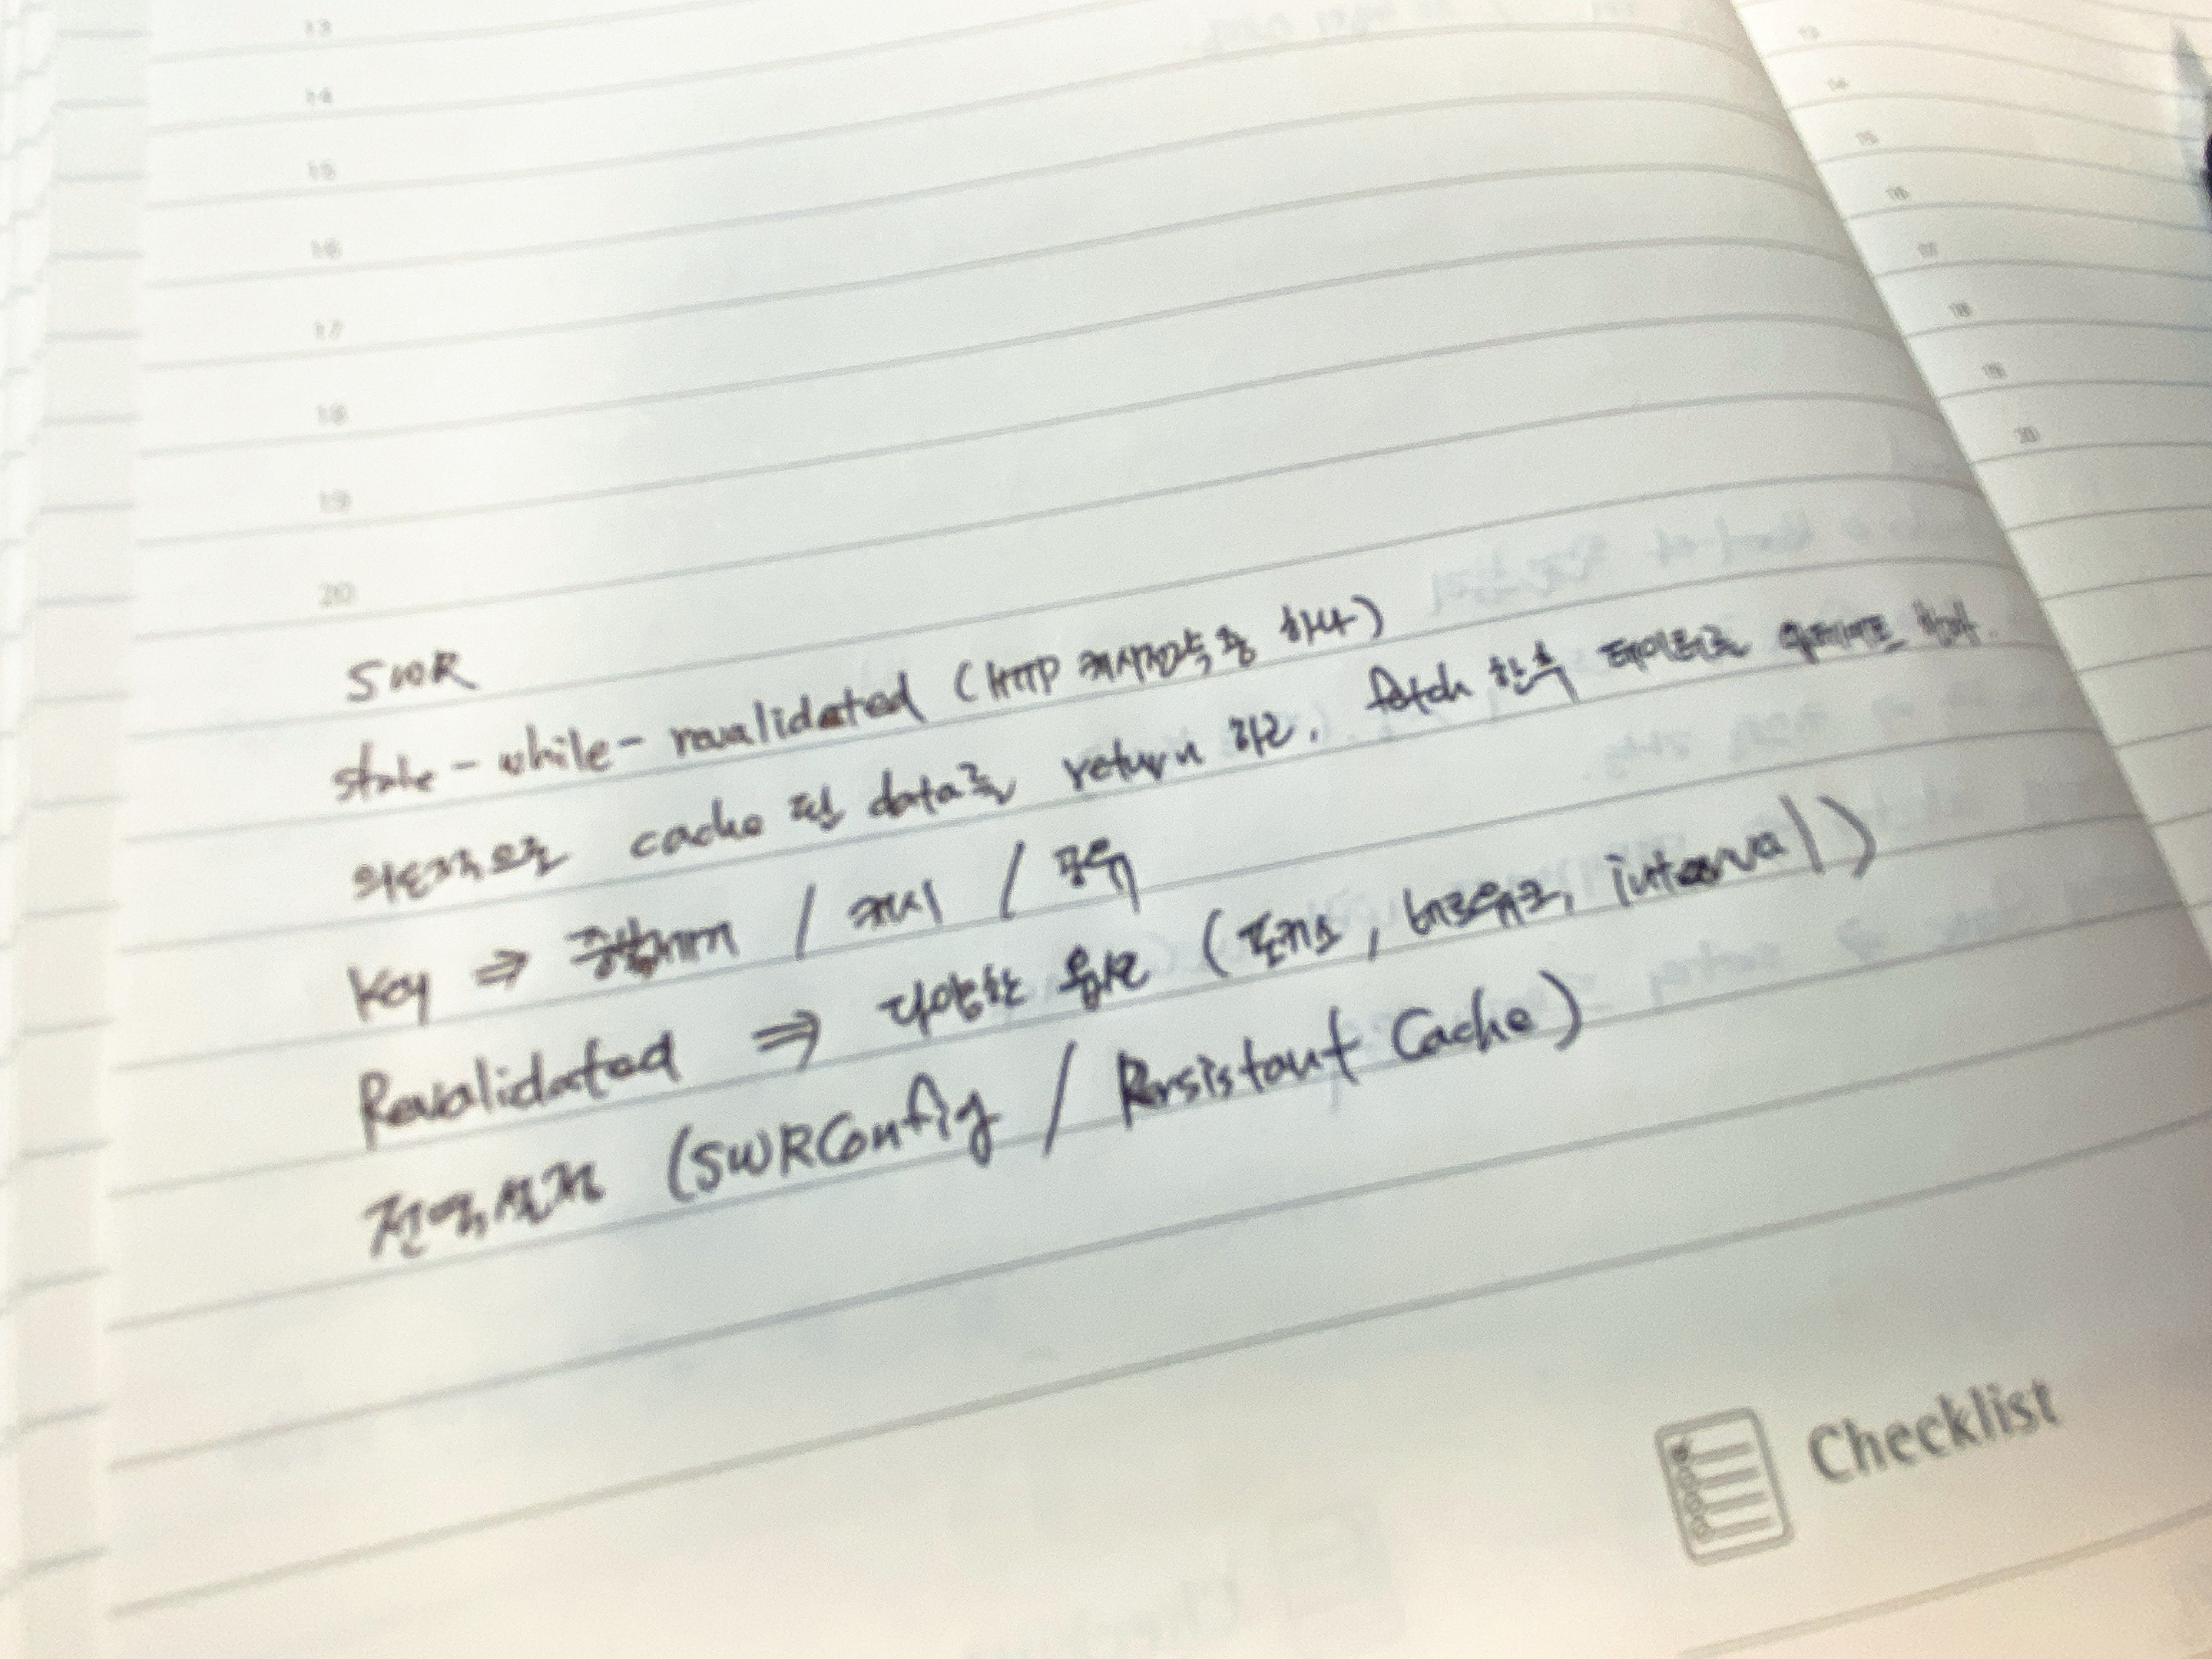 13
14
15
16
17
18
19
20
SWR
stale-while-revalidated (HTTP 캐시전략 중 하나)
의도적으로 cache 된 data를 return 하고, fetch 한 후 데이터로 업데이트 한다.
key ⇒ 중복제거 / 캐시 / 공유
Revalidated ⇒ 다양한 옵션 (포커스, 네트워크, interval)
전역설정 (SWRConfig / Persistant Cache)
Checklist
13
14
15
16
17
18
19
20